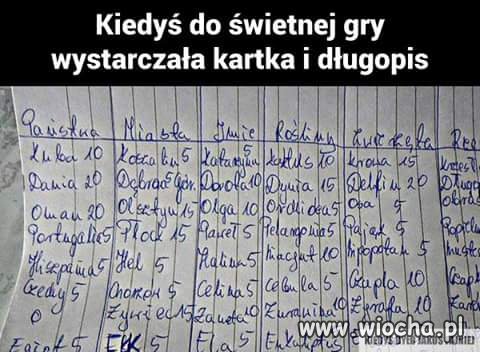 Kiedyś do świetnej gry
wystarczała kartka i długopis
Państwa Miasta Imię Rośliny Zwierzęta
Kuba 10 Koszalin 5 Katarzyna 5 kaktus 10 krowa 15
Dania 20 Dorota 10 Dynia 15 Delfin 20
Oman 20 Olsztyn 15 Olga 10 Orchidea 5 Osa 5
Portugalia 5 Płock 15 Paweł 5 Pelargonia 5 Pająk 5
Hiszpania 5 Hel 5 Halina 5 Hiacynt 10 Hipopotam 5
Czechy 5 Chorzów 5 Celina 5 Cebula 5 Czapla 10
0 Żywiec 15 Żaneta 10 Żurawina 10 Żyrafa 10
Egipt 5 Ełk 5 Ela 5 Eukaliptus
www.wiocha.pl